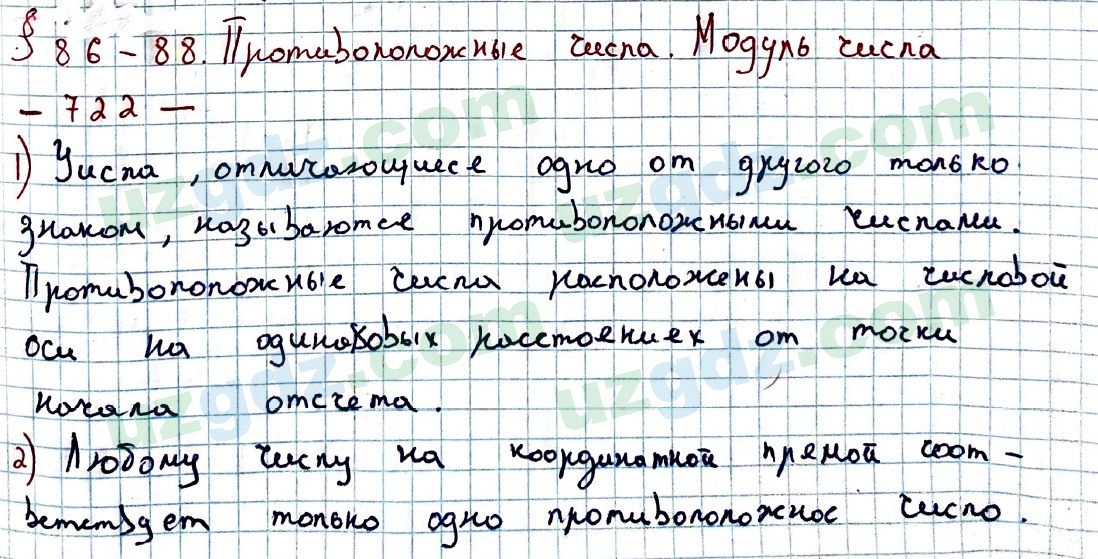 § 86-88. Противоположные числа. Модуль числа
- 722 -
1) Числа, отличающиеся одно от другого только
знаком, называются противоположными числами.
Противоположные числа расположены на числовой
оси на одинаковых расстояниях от точки
начала отсчёта.
2) Любому числу на координатной прямой соот-
ветствует только одно противоположное число.
uzgdz.com
uzgdz.com
uzgdz.com
uzgdz.com